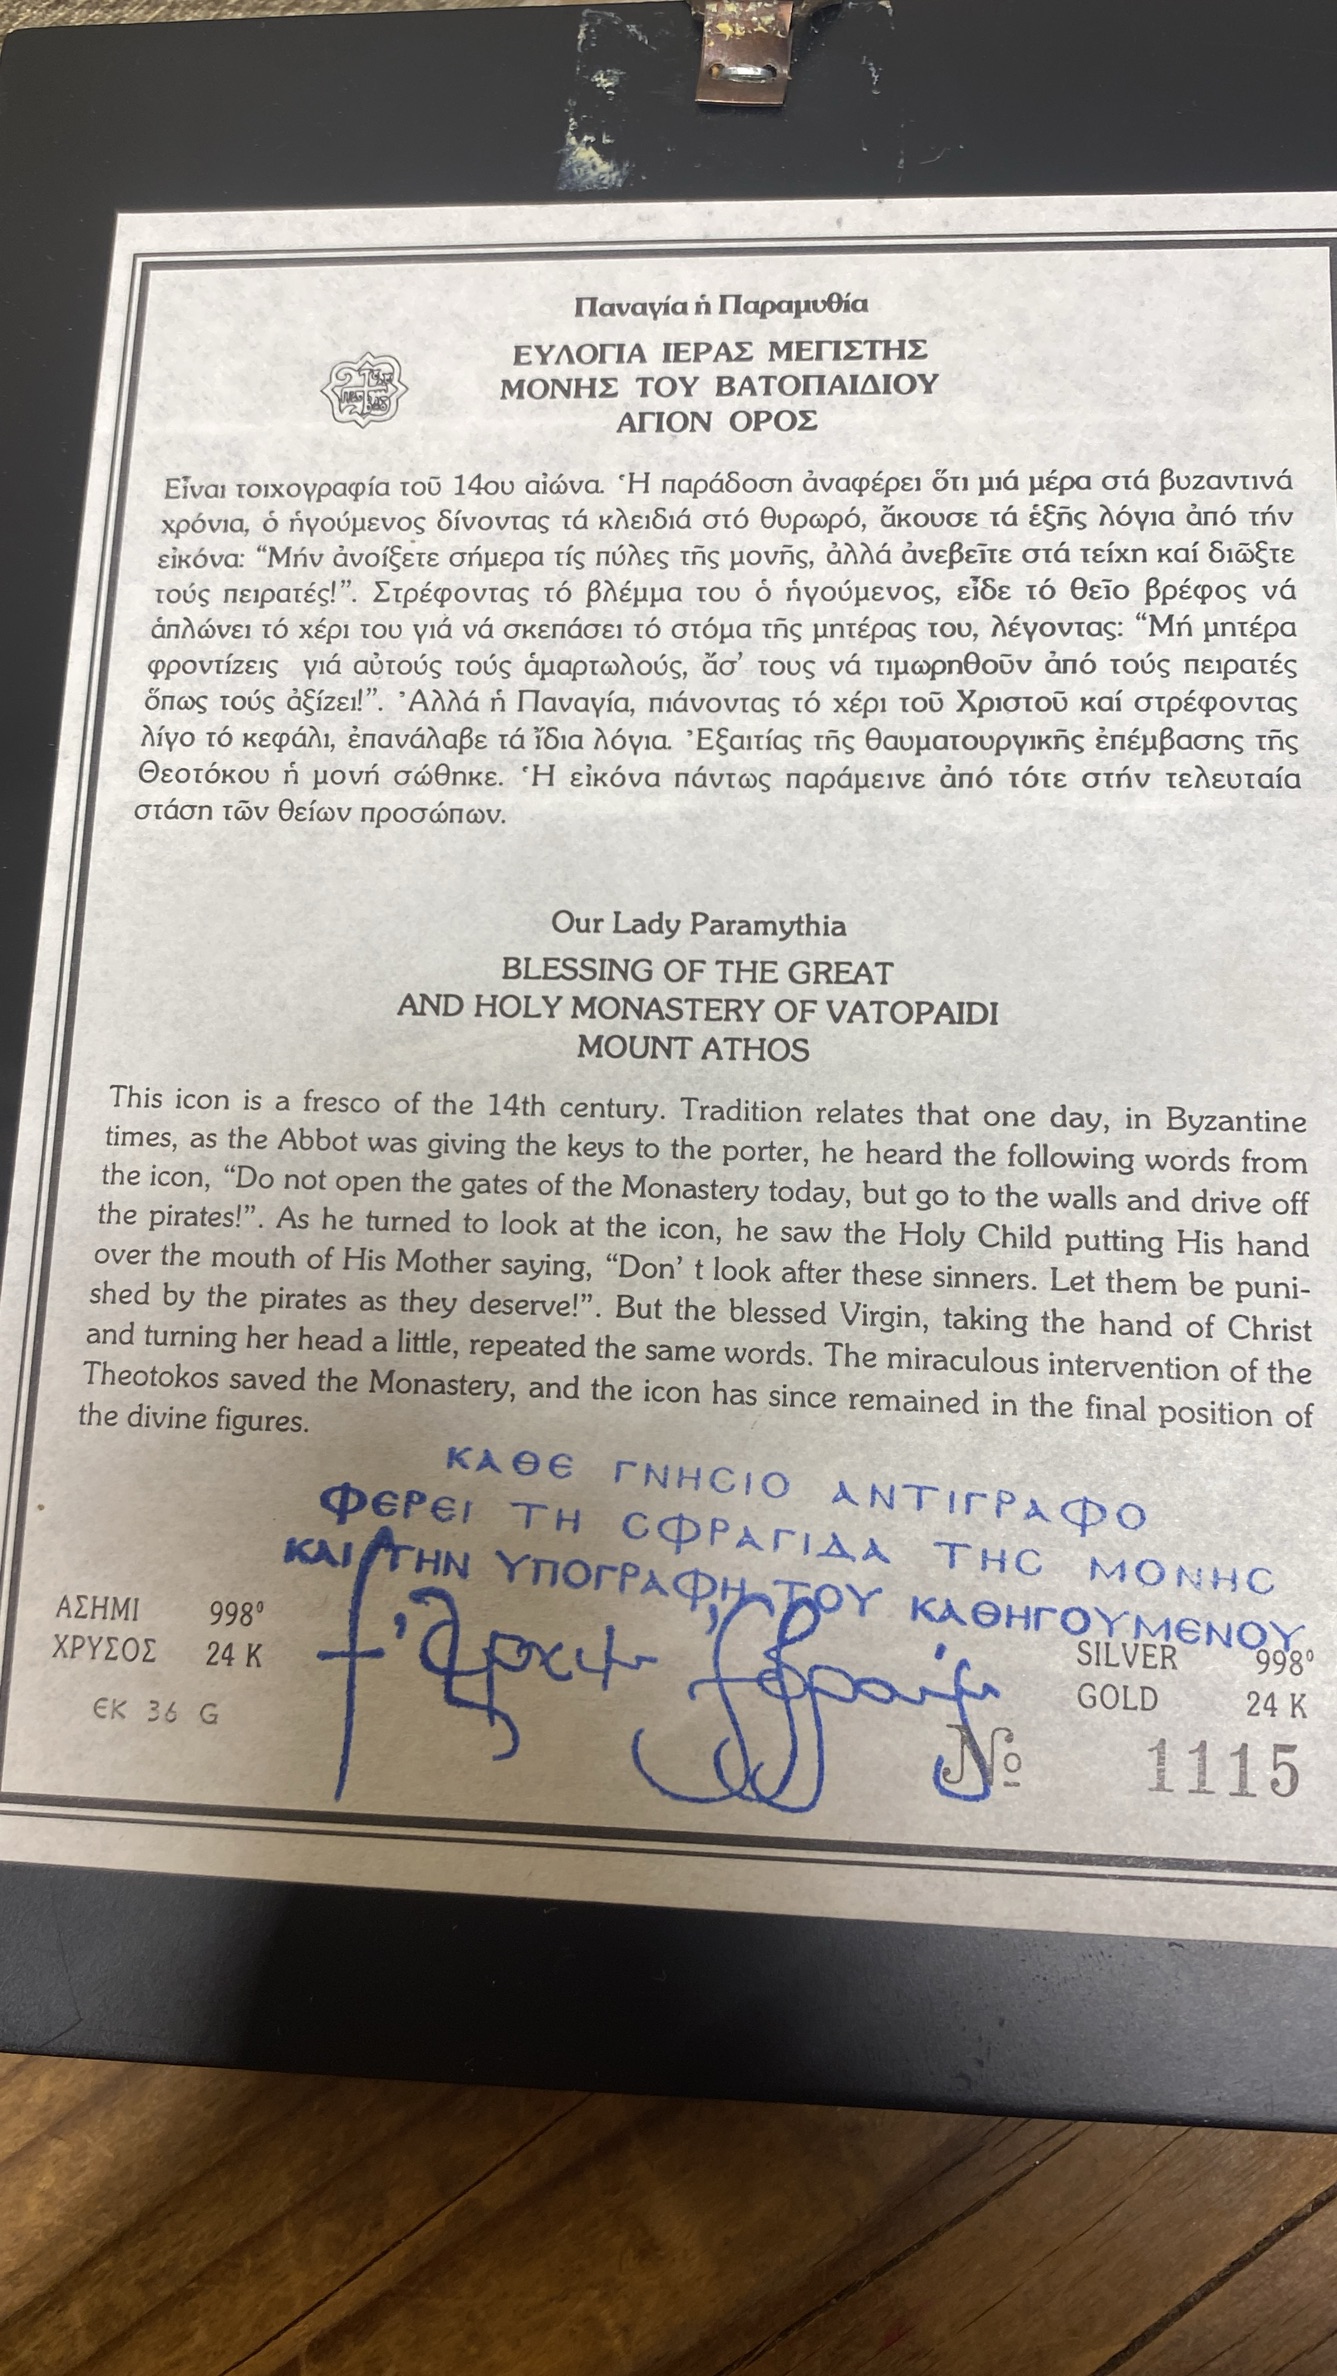 Παναγία ἡ Παραμυθία
ΕΥΛΟΓΙΑ ΙΕΡΑΣ ΜΕΓΙΣΤΗΣ
ΜΟΝΗΣ ΤΟΥ ΒΑΤΟΠΑΙΔΙΟΥ
ΑΓΙΟΝ ΟΡΟΣ
Εἶναι τοιχογραφία τοῦ 14ου αἰώνα. Ἡ παράδοση ἀναφέρει ὅτι μιά μέρα στά βυζαντινά
χρόνια, ὁ ἡγούμενος δίνοντας τά κλειδιά στό θυρωρό, ἄκουσε τά ἑξῆς λόγια ἀπό τήν
εἰκόνα: “Μήν ἀνοίξετε σήμερα τίς πύλες τῆς μονῆς, ἀλλά ἀνεβεῖτε στά τείχη καί διῶξτε
τούς πειρατές!”. Στρέφοντας τό βλέμμα του ὁ ἡγούμενος, εἶδε τό θεῖο βρέφος νά
ἁπλώνει τό χέρι του γιά νά σκεπάσει τό στόμα τῆς μητέρας του, λέγοντας: “Μή μητέρα
φροντίζεις γιά αὐτούς τούς ἁμαρτωλούς, ἄσ’ τους νά τιμωρηθοῦν ἀπό τούς πειρατές
ὅπως τούς ἀξίζει!”. Ἀλλά ἡ Παναγία, πιάνοντας τό χέρι τοῦ Χριστοῦ καί στρέφοντας
λίγο τό κεφάλι, ἐπανάλαβε τά ἴδια λόγια. Ἐξαιτίας τῆς θαυματουργικῆς ἐπέμβασης τῆς
Θεοτόκου ἡ μονή σώθηκε. Ἡ εἰκόνα πάντως παράμεινε ἀπό τότε στήν τελευταία
στάση τῶν θείων προσώπων.
Our Lady Paramythia
BLESSING OF THE GREAT
AND HOLY MONASTERY OF VATOPAIDI
MOUNT ATHOS
This icon is a fresco of the 14th century. Tradition relates that one day, in Byzantine
times, as the Abbot was giving the keys to the porter, he heard the following words from
the icon, “Do not open the gates of the Monastery today, but go to the walls and drive off
the pirates!”. As he turned to look at the icon, he saw the Holy Child putting His hand
over the mouth of His Mother saying, “Don’ t look after these sinners. Let them be puni-
shed by the pirates as they deserve!”. But the blessed Virgin, taking the hand of Christ
and turning her head a little, repeated the same words. The miraculous intervention of the
Theotokos saved the Monastery, and the icon has since remained in the final position of
the divine figures.
ΚΑΘΕ ΓΝΗCΙΟ ΑΝΤΙΓΡΑΦΟ
ΦΕΡΕΙ ΤΗ CΦΡΑΓΙΔΑ ΤΗC ΜΟΝΗC
ΚΑΙ ΤΗΝ ΥΠΟΓΡΑΦΗ ΤΟΥ ΚΑΘΗΓΟΥΜΕΝΟΥ
ΑΣΗΜΙ 998⁰
ΧΡΥΣΟΣ 24 Κ
ЄΚ 36 G
SILVER 998⁰
GOLD 24 K
№ 1115